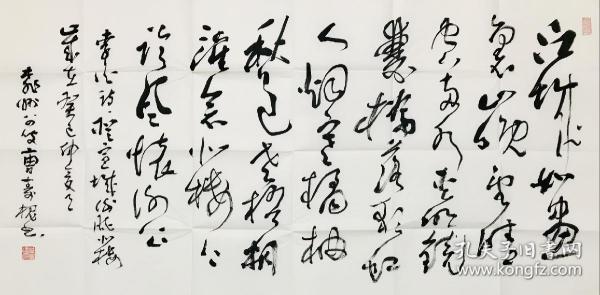 江城如畫
里山晚望晴
空兩水夾明鏡
雙橋落彩虹
人烟寒橘柚
秋色老梧桐
誰念北樓上
临風懷謝公
李白詩登宣城謝脁北樓
歲在癸巳仲夏
曹
书
孔夫子旧书网
www.kongfz.com